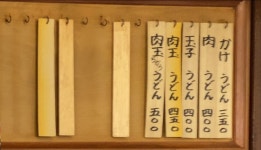 かけうどん 三五〇
肉うどん 四〇〇
玉子うどん 四〇〇
肉玉うどん 四五〇
肉玉うどん 五〇〇